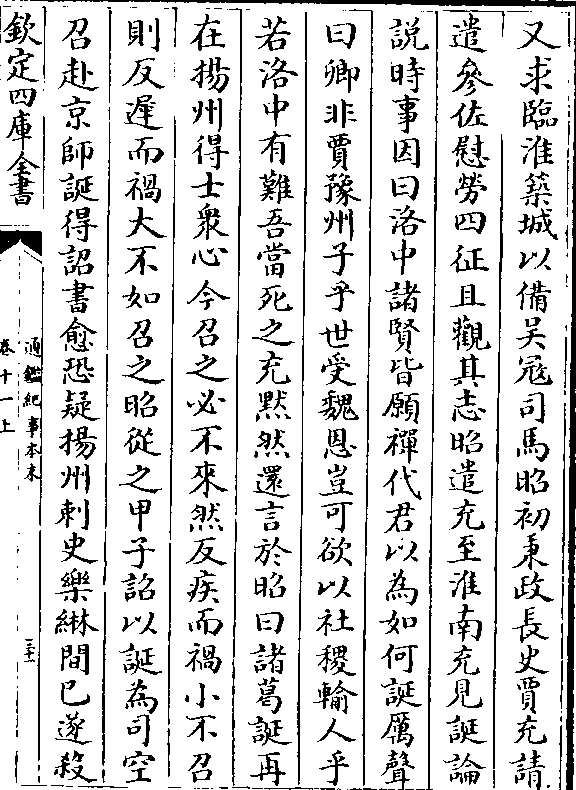 又求臨淮築城以備吴冦司馬昭初秉政長史賈充請
遣參佐慰勞四征且觀其志昭遣充至淮南充見誕論
説時事因曰洛中諸賢皆願禪代君以為如何誕厲聲
曰卿非賈豫州子乎世受魏恩豈可欲以社稷輸人乎
若洛中有難吾當死之充黙然還言於昭曰諸葛誕再
在揚州得士衆心今召之必不來然反疾而禍小不召
則反遲而禍大不如召之昭從之甲子詔以誕為司空
召赴京師誕得詔書愈恐疑揚州刺史樂綝間已遂殺
欽定四庫全書
通鑑紀事本末
卷十一上